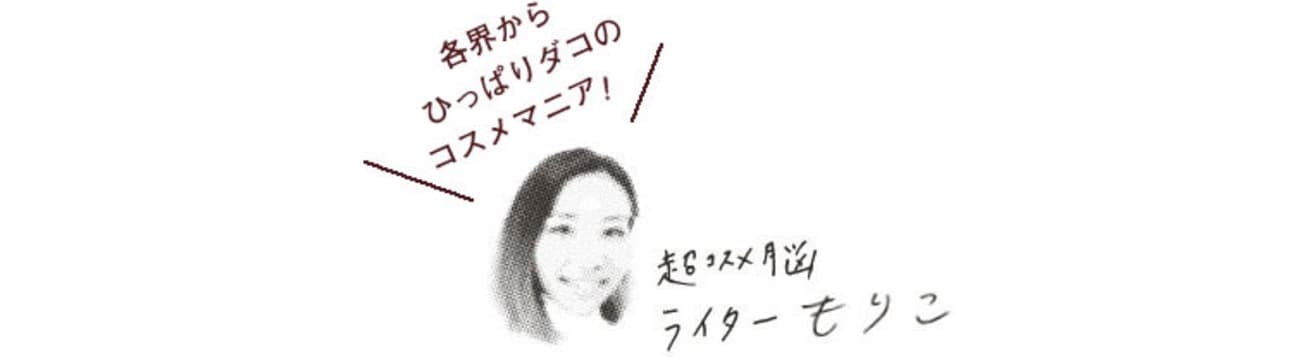 各界から
ひっぱりダコの
コスメマニア！
超コスメ脳
ライターもりこ